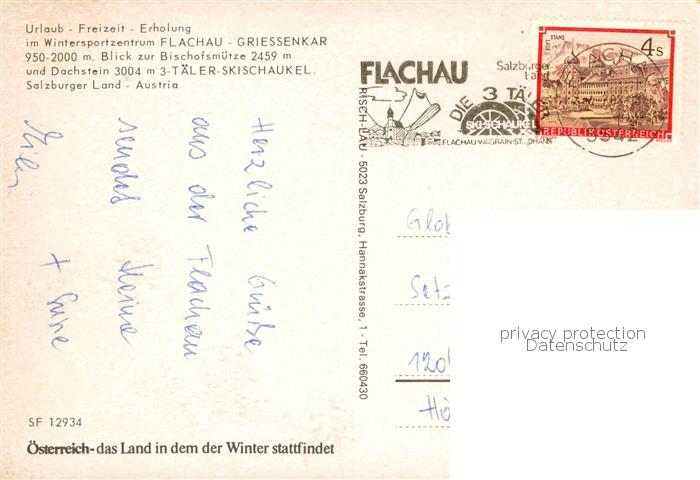 Urlaub - Freizeit - Erholung
im Wintersportzentrum FLACHAU - GRIESSENKAR
950-2000 m. Blick zur Bischofsmütze 2459 m
und Dachstein 3004 m 3-TÄLER-SKISCHAUKEL.
Salzburger Land - Austria
FLACHAU
Salzburger
Land
DIE 3 TÄL
SKISCHAUKEL
FLACHAU-WAGRAIN-ST. JOHANN
STIFT STAMS
4 s
REPUBLIK ÖSTERREICH
5542
Herzliche Grüße
aus der Flachau
sendet Heine
+ Suse
RISCH-LAU - 5023 Salzburg, Hannakstrasse, 1 - Tel. 660430
Glo
Satz
120
Hö
privacy protection
Datenschutz
SF 12934
Österreich-das Land in dem der Winter stattfindet